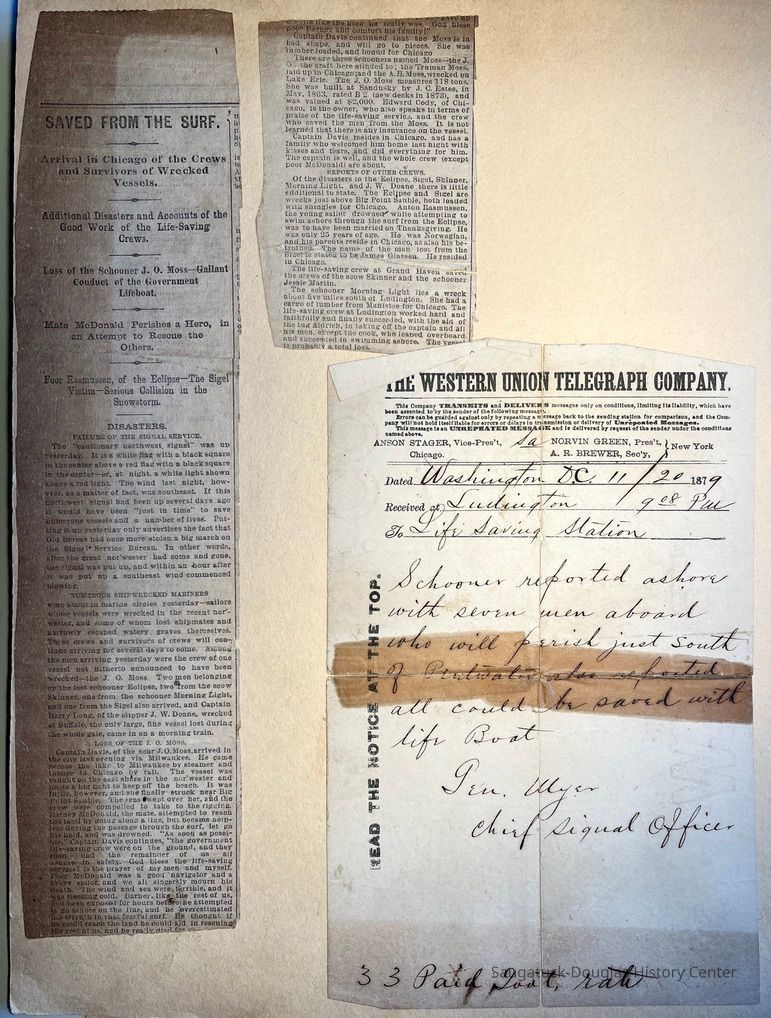 SAVED FROM THE SURF.
Arrival in Chicago of the Crews
and Survivors of Wrecked
Vessels.
Additional Disasters and Accounts of the
Good Work of the Life-Saving
Crews.
Loss of the Schooner J. O. Moss—Gallant
Conduct of the Government
Lifeboat.
Mate McDonald Perishes a Hero, in
an Attempt to Rescue the
Others.
Poor Rasmussen, of the Eclipse—The Sigel
Victim—Serious Collision in the
Snowstorm.
DISASTERS.
FAILURE OF THE SIGNAL SERVICE.
The "cautionary northwest signal" was up
yesterday. It is a white flag with a black square
in the center above a red flag with a black square
in the center—or, at night, a white light shown
above a red light. The wind last night, how-
ever, as a matter of fact, was southeast. If this
northwest signal had been up several days ago
it would have been "just in time" to save
numerous vessels and a number of lives. Put-
ting it up yesterday only advertises the fact that
Old Boreas had once more stolen a big march on
the Signal Service Bureau. In other words,
after the great nor'wester had come and gone,
the signal was put up, and within an hour after
it was put up a southeast wind commenced
blowing.
NUMEROUS SHIPWRECKED MARINERS
were about in marine circles yesterday—sailors
whose vessels were wrecked in the recent nor'-
wester, and some of whom lost shipmates and
narrowly escaped watery graves themselves.
These crews and survivors of crews will con-
tinue arriving for several days to come. Among
the men arriving yesterday were the crew of one
vessel not hitherto announced to have been
wrecked—the J. O. Moss. Two men belonging
to the lost schooner Eclipse, two from the scow
Skinner, one from the schooner Morning Light,
and one from the Sigel also arrived, and Captain
Harry Long, of the clipper J. W. Doane, wrecked
at Buffalo, the only large, fine vessel lost during
the whole gale, came in on a morning train.
LOSS OF THE J. O. MOSS.
Captain Davis, of the scow J. O. Moss, arrived in
the city last evening via Milwaukee. He came
across the lake to Milwaukee by steamer and
thence to Chicago by rail. The vessel was
caught on the east shore in the nor'wester and
made a big fight to keep off the beach. It was
futile, however, and she finally struck near Big
Point Sauble. The seas swept over her, and the
crew were compelled to take to the rigging.
Barney McDonald, the mate, attempted to reach
the land by going along a line, but became help-
less during the passage through the surf, let go
his hold, and was drowned. "As soon as possi-
ble," Captain Davis continues, "the government
life-saving crew were on the ground, and they
soon had the remainder of us all
ashore in safety. God bless the life-saving
service! is the prayer of my men and myself.
Poor McDonald was a good navigator and a
brave sailor, and we all sincerely mourn his
death. The wind and sea were terrible, and it
was freezing cold. Barney, like the rest of us,
had been exposed for hours before he attempted
to go ashore on the line, and he overestimated
his strength in that fearful surf. He thought if
he could reach the land he could aid in rescuing
the rest of us, and he really died for us
like the hero he really was. God bless
poor Barney and comfort his family!"
Captain Davis continued that the Moss is in
bad shape, and will go to pieces. She was
lumber loaded, and bound for Chicago.
There are three schooners named Moss—the J.
O., the craft here alluded to; the Truman Moss,
laid up in Chicago; and the A. H. Moss, wrecked on
Lake Erie. The J. O. Moss measures 118 tons.
She was built at Sandusky by J. C. Estes, in
May, 1863, rated B 2 (new decks in 1873), and
was valued at $2,000. Edward Cody, of Chi-
cago, is the owner, who also speaks in terms of
praise of the life-saving service, and the crew
who saved the men from the Moss. It is not
learned that there is any insurance on the vessel.
Captain Davis resides in Chicago, and has a
family who welcomed him home last night with
kisses and tears, and did everything for him.
The captain is well, and the whole crew (except
poor McDonald) are about.
REPORTS OF OTHER CREWS.
Of the disasters to the Eclipse, Sigel, Skinner,
Morning Light, and J. W. Doane there is little
additional to state. The Eclipse and Sigel are
wrecks just above Big Point Sauble, both loaded
with shingles for Chicago. Anton Rasmussen,
the young sailor drowned while attempting to
swim ashore through the surf from the Eclipse,
was to have been married on Thanksgiving. He
was only 25 years of age. He was Norwegian,
and his parents reside in Chicago, as also his be-
trothed. The name of the man lost from the
Sigel is stated to be James Glassen. He resided
in Chicago.
The life-saving crew at Grand Haven saved
the crews of the scow Skinner and the schooner
Jessie Martin.
The schooner Morning Light lies a wreck
about five miles south of Ludington. She had a
cargo of lumber from Manistee for Chicago. The
life-saving crew at Ludington worked hard and
faithfully and finally succeeded, with the aid of
the tug Aldrich, in taking off the captain and all
his men, except the cook, who leaped overboard
and succeeded in swimming ashore. The vessel
is probably a total loss.
THE WESTERN UNION TELEGRAPH COMPANY.
This Company TRANSMITS and DELIVERS messages only on conditions, limiting its liability, which have
been assented to by the sender of the following message.
Errors can be guarded against only by repeating a message back to the sending station for comparison, and the Com-
pany will not hold itself liable for errors or delays in transmission or delivery of Unrepeated Messages.
This message is an UNREPEATED MESSAGE and is delivered by request of the sender under the conditions
named above.
ANSON STAGER, Vice-Pres't, Chicago.
NORVIN GREEN, Pres't,
A. R. BREWER, Sec'y,
New York
Dated Washington DC. 11/20 1879
Received at Ludington 9 08 Pm
To Life Saving Station
Schooner reported ashore
with seven men aboard
who will perish just South
of Pentwater also reported
all could be saved with
life Boat
Gen. Myer
Chief Signal Officer
READ THE NOTICE AT THE TOP.
33 Paid Govt. rate
Saugatuck-Douglas History Center